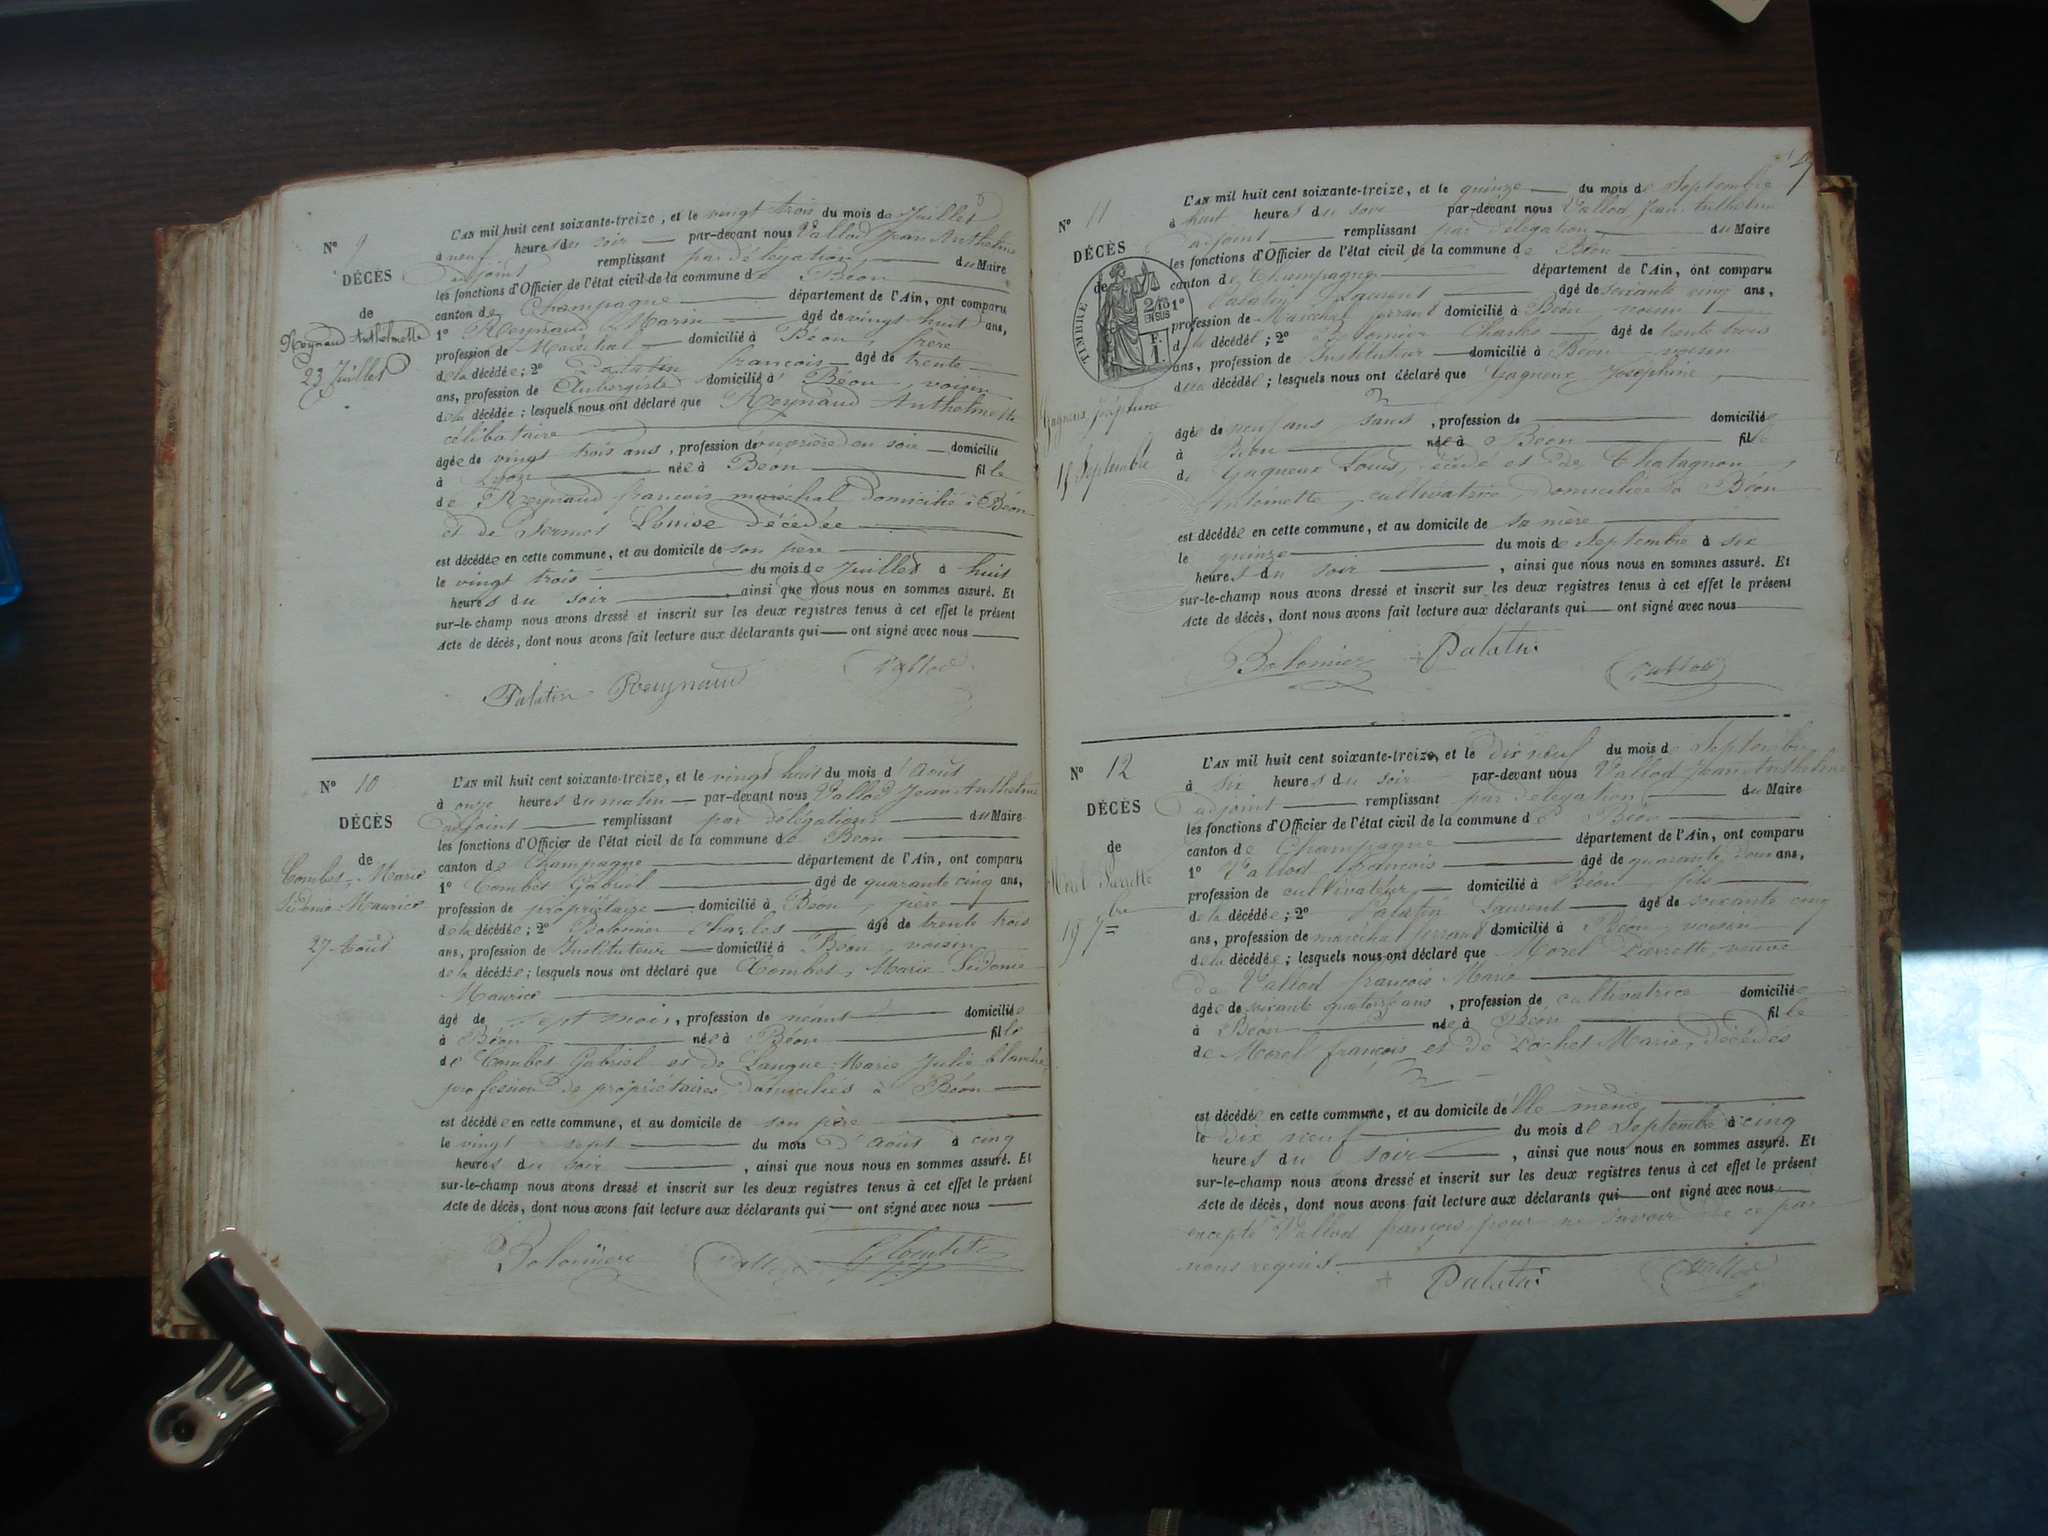 N° 9
DÉCÈS
de
Reynaud Anthelmette
23 Juillet
L'AN mil huit cent soixante-treize, et le vingt trois du mois de Juillet
à neuf heures du soir par-devant nous Vallod Jean Anthelme
adjoint remplissant par délégation du Maire
les fonctions d'Officier de l'état civil de la commune de Béon
canton de Champagne département de l'Ain, ont comparu
1° Reynaud Marin âgé de vingt huit ans,
profession de Maréchal domicilié à Béon, frère
de la décédée ; 2° Palatin françois âgé de trente
ans, profession de Aubergiste domicilié à Béon, voisin
de la décédée ; lesquels nous ont déclaré que Reynaud Anthelmette
célibataire
âgée de vingt trois ans, profession de ouvrière en soie domicilié
à Lyon née à Béon fille
de Reynaud françois maréchal domicilié à Béon
et de Louise décédée
est décédée en cette commune, et au domicile de son père
le vingt trois du mois de Juillet à huit
heures du soir, ainsi que nous nous en sommes assuré. Et
sur-le-champ nous avons dressé et inscrit sur les deux registres tenus à cet effet le présent
Acte de décès, dont nous avons fait lecture aux déclarants qui ont signé avec nous
Palatin Reynaud Vallod
N° 10
DÉCÈS
de
Combet Marie
Sidonie Maurice
27 Août
L'AN mil huit cent soixante-treize, et le vingt huit du mois d'Août
à onze heures du matin par-devant nous Vallod Jean Anthelme
adjoint remplissant par délégation du Maire
les fonctions d'Officier de l'état civil de la commune de Béon
canton de Champagne département de l'Ain, ont comparu
1° Combet Gabriel âgé de quarante cinq ans,
profession de propriétaire domicilié à Béon, père
de la décédée ; 2° Bolomier Charles âgé de trente trois
ans, profession de Instituteur domicilié à Béon, voisin
de la décédée ; lesquels nous ont déclaré que Combet, Marie Sidonie
Maurice
âgé de sept mois, profession de néant domiciliée
à Béon née à Béon fille
de Combet Gabriel et de Marie Julie blanche
profession de propriétaires domiciliés à Béon
est décédée en cette commune, et au domicile de son père
le vingt sept du mois d'Août à cinq
heures du soir, ainsi que nous nous en sommes assuré. Et
sur-le-champ nous avons dressé et inscrit sur les deux registres tenus à cet effet le présent
Acte de décès, dont nous avons fait lecture aux déclarants qui ont signé avec nous
Bolomier
N° 11
DÉCÈS
de
TIMBRE
2/10
EN SUS
F.
1.
Gagneux Joséphine
15 Septembre
L'AN mil huit cent soixante-treize, et le quinze du mois de Septembre
à huit heures du soir par-devant nous Vallod Jean Anthelme
adjoint remplissant par délégation du Maire
les fonctions d'Officier de l'état civil de la commune de Béon
canton de Champagne département de l'Ain, ont comparu
1° Palatin Laurent âgé de soixante cinq ans,
profession de Maréchal ferrant domicilié à Béon voisin
de la décédée ; 2° Bolomier Charles âgé de trente trois
ans, profession de Instituteur domicilié à Béon voisin
de la décédée ; lesquels nous ont déclaré que Gagneux Joséphine,
âgée de neuf ans sans, profession de domiciliée
à Béon née à Béon fille
de Gagneux Louis, décédé et de Chatagnon
Antoinette, cultivatrice, domiciliée à Béon
est décédée en cette commune, et au domicile de sa mère
le quinze du mois de Septembre à six
heures du soir, ainsi que nous nous en sommes assuré. Et
sur-le-champ nous avons dressé et inscrit sur les deux registres tenus à cet effet le présent
Acte de décès, dont nous avons fait lecture aux déclarants qui ont signé avec nous
Bolomier Palatin Vallod
N° 12
DÉCÈS
de
Morel Pierrette
19 7bre
L'AN mil huit cent soixante-treize, et le dix neuf du mois de Septembre
à six heures du soir par-devant nous Vallod Jean Anthelme
adjoint remplissant par délégation du Maire
les fonctions d'Officier de l'état civil de la commune de Béon
canton de Champagne département de l'Ain, ont comparu
1° Vallod françois âgé de quarante deux ans,
profession de cultivateur domicilié à Béon, fils
de la décédée ; 2° Palatin Laurent âgé de soixante cinq
ans, profession de maréchal ferrant domicilié à Béon, voisin
de la décédée ; lesquels nous ont déclaré que Morel Pierrette veuve
de Vallod françois Marie
âgée de soixante quatorze ans, profession de cultivatrice domiciliée
à Béon née à Béon fille
de Morel françois et de Pochet Marie, décédés
est décédée en cette commune, et au domicile de elle même
le dix neuf du mois de Septembre à cinq
heures du soir, ainsi que nous nous en sommes assuré. Et
sur-le-champ nous avons dressé et inscrit sur les deux registres tenus à cet effet le présent
Acte de décès, dont nous avons fait lecture aux déclarants qui ont signé avec nous
excepté Vallod françois pour ne savoir de ce par
nous requis.
Palatin Vallod